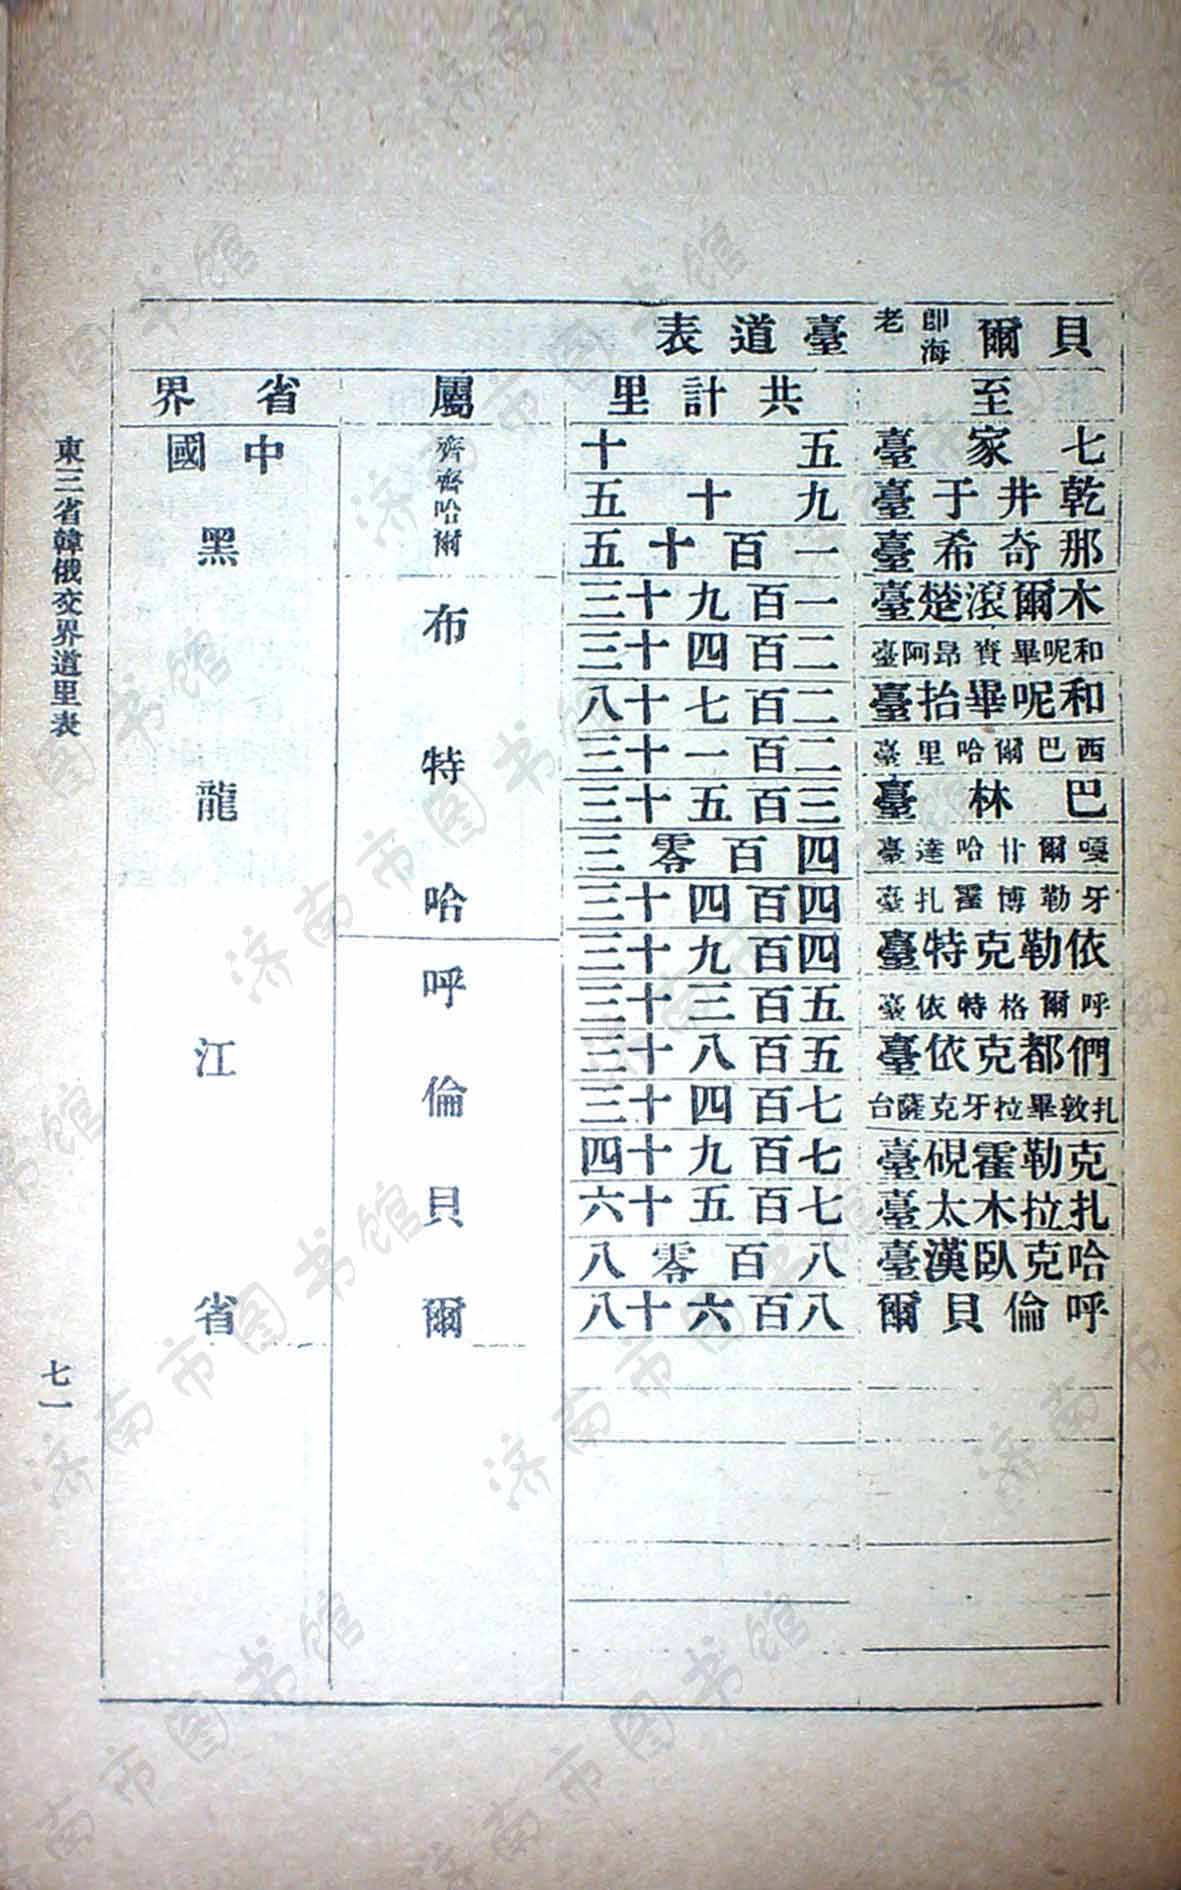 貝爾即海老臺道表
至 共計里 屬 省界
七家臺 五十
乾井子臺 九十五
那奇希臺 一百十五
木爾滾楚臺 一百九十三
和呢畢賚昂阿臺 二百四十三
和呢畢抬臺 二百七十八
西巴爾哈里臺 二百一十三
巴林臺 三百五十三
嘎爾甘哈達臺 四百零三
牙勒博霍扎臺 四百四十三
依勒克特臺 四百九十三
呼爾格特依臺 五百三十三
們都克依臺 五百八十三
扎敦畢拉牙克薩台 七百四十三
克勒霍硯臺 七百九十四
扎拉木太臺 七百五十六
哈克臥漢臺 八百零八
呼倫貝爾 八百六十八
齊齊哈爾
布特哈
呼倫貝爾
中國
黑龍江省
東三省韓俄交界道里表
七一
济南市图书馆